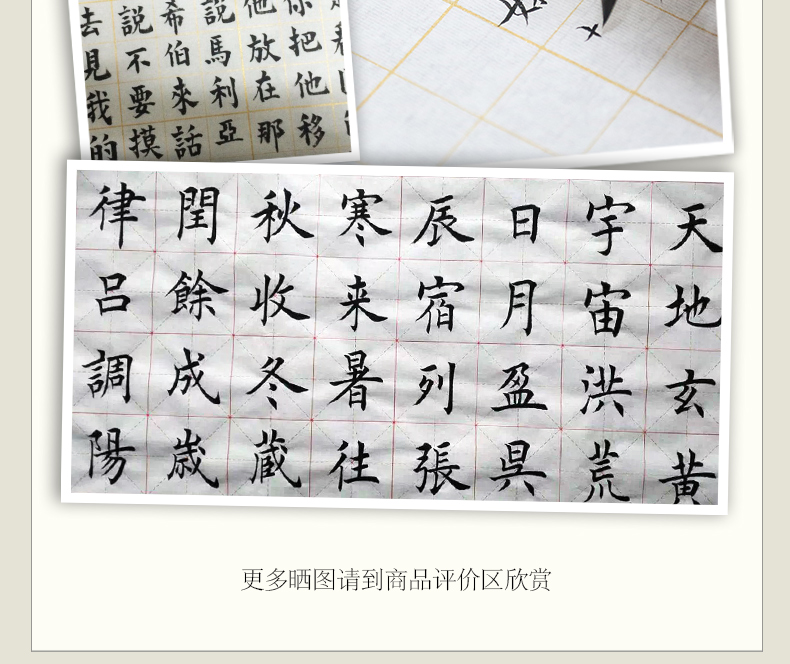 你把他移
他放在那
說馬利亞
希伯來話
說不要摸
去見我的
天地玄黄
宇宙洪荒
日月盈呉
辰宿列張
寒来暑往
秋收冬蔵
閏餘成歳
律呂調陽
更多晒图请到商品评价区欣赏